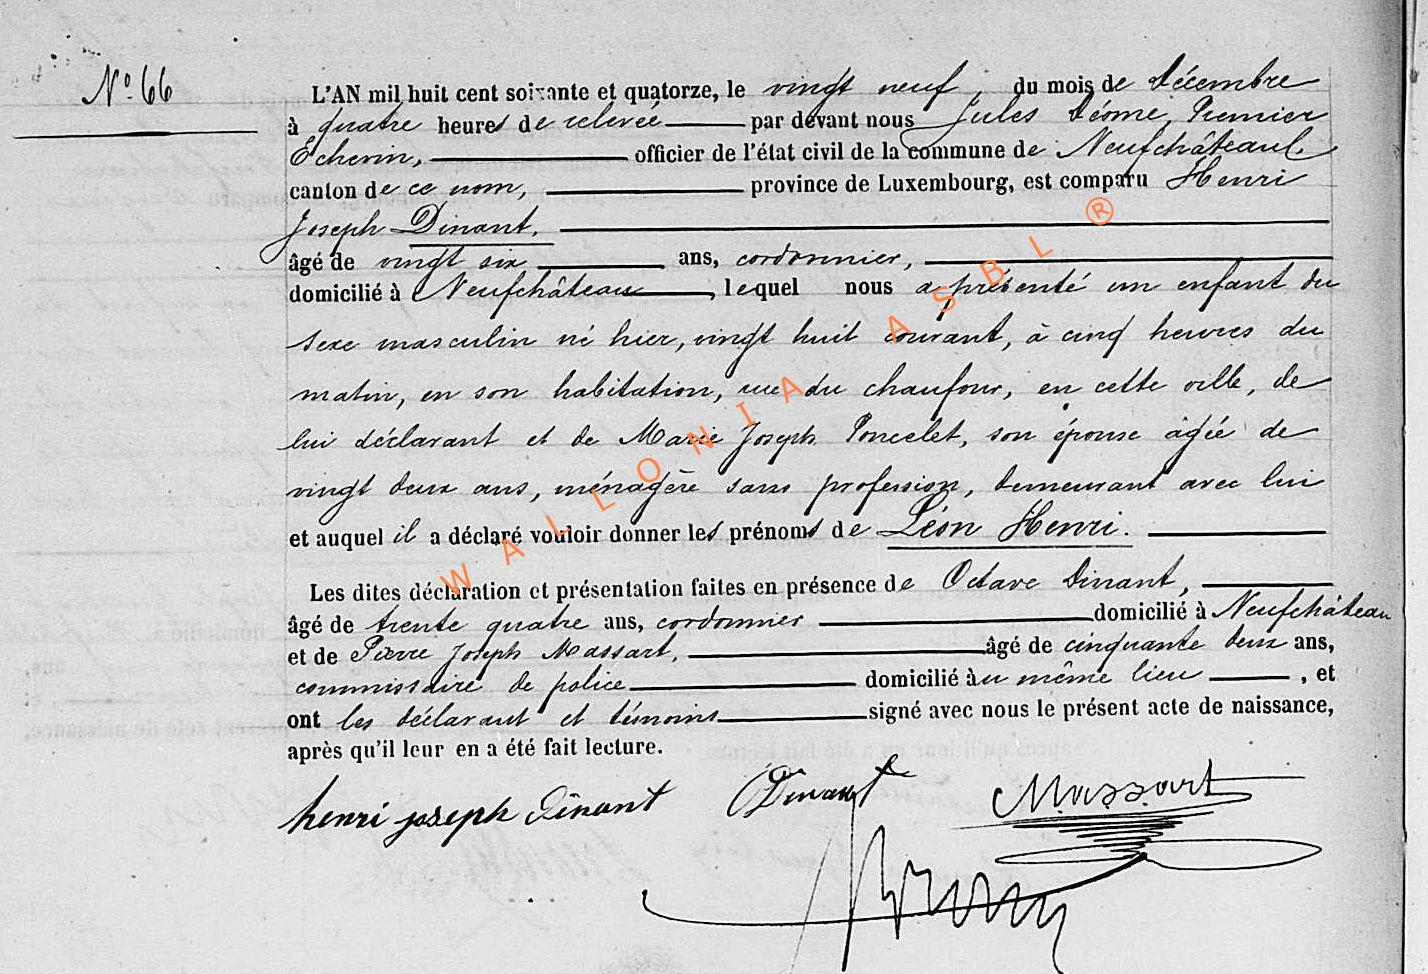 N° 66
L'AN mil huit cent soixante et quatorze, le vingt neuf, du mois de Décembre
à quatre heures de relevée par devant nous Jules Déome, Premier
Echevin, officier de l'état civil de la commune de Neufchâteau,
canton de ce nom, province de Luxembourg, est comparu Henri
Joseph Dinant,
âgé de vingt six ans, cordonnier,
domicilié à Neufchâteau, lequel nous a présenté un enfant du
sexe masculin né hier, vingt huit courant, à cinq heures du
matin, en son habitation, rue du chaufour, en cette ville, de
lui déclarant et de Marie Joseph Poncelet, son épouse âgée de
vingt deux ans, ménagère sans profession, demeurant avec lui
et auquel il a déclaré vouloir donner les prénoms de Léon Henri.
Les dites déclaration et présentation faites en présence de Octave Dinant,
âgé de trente quatre ans, cordonnier domicilié à Neufchâteau
et de Pierre Joseph Massart, âgé de cinquante deux ans,
commissaire de police domicilié au même lieu, et
ont les déclarant et témoins signé avec nous le présent acte de naissance,
après qu'il leur en a été fait lecture.
henri joseph Dinant ODinant Massart
WALLONIA ASBL ®